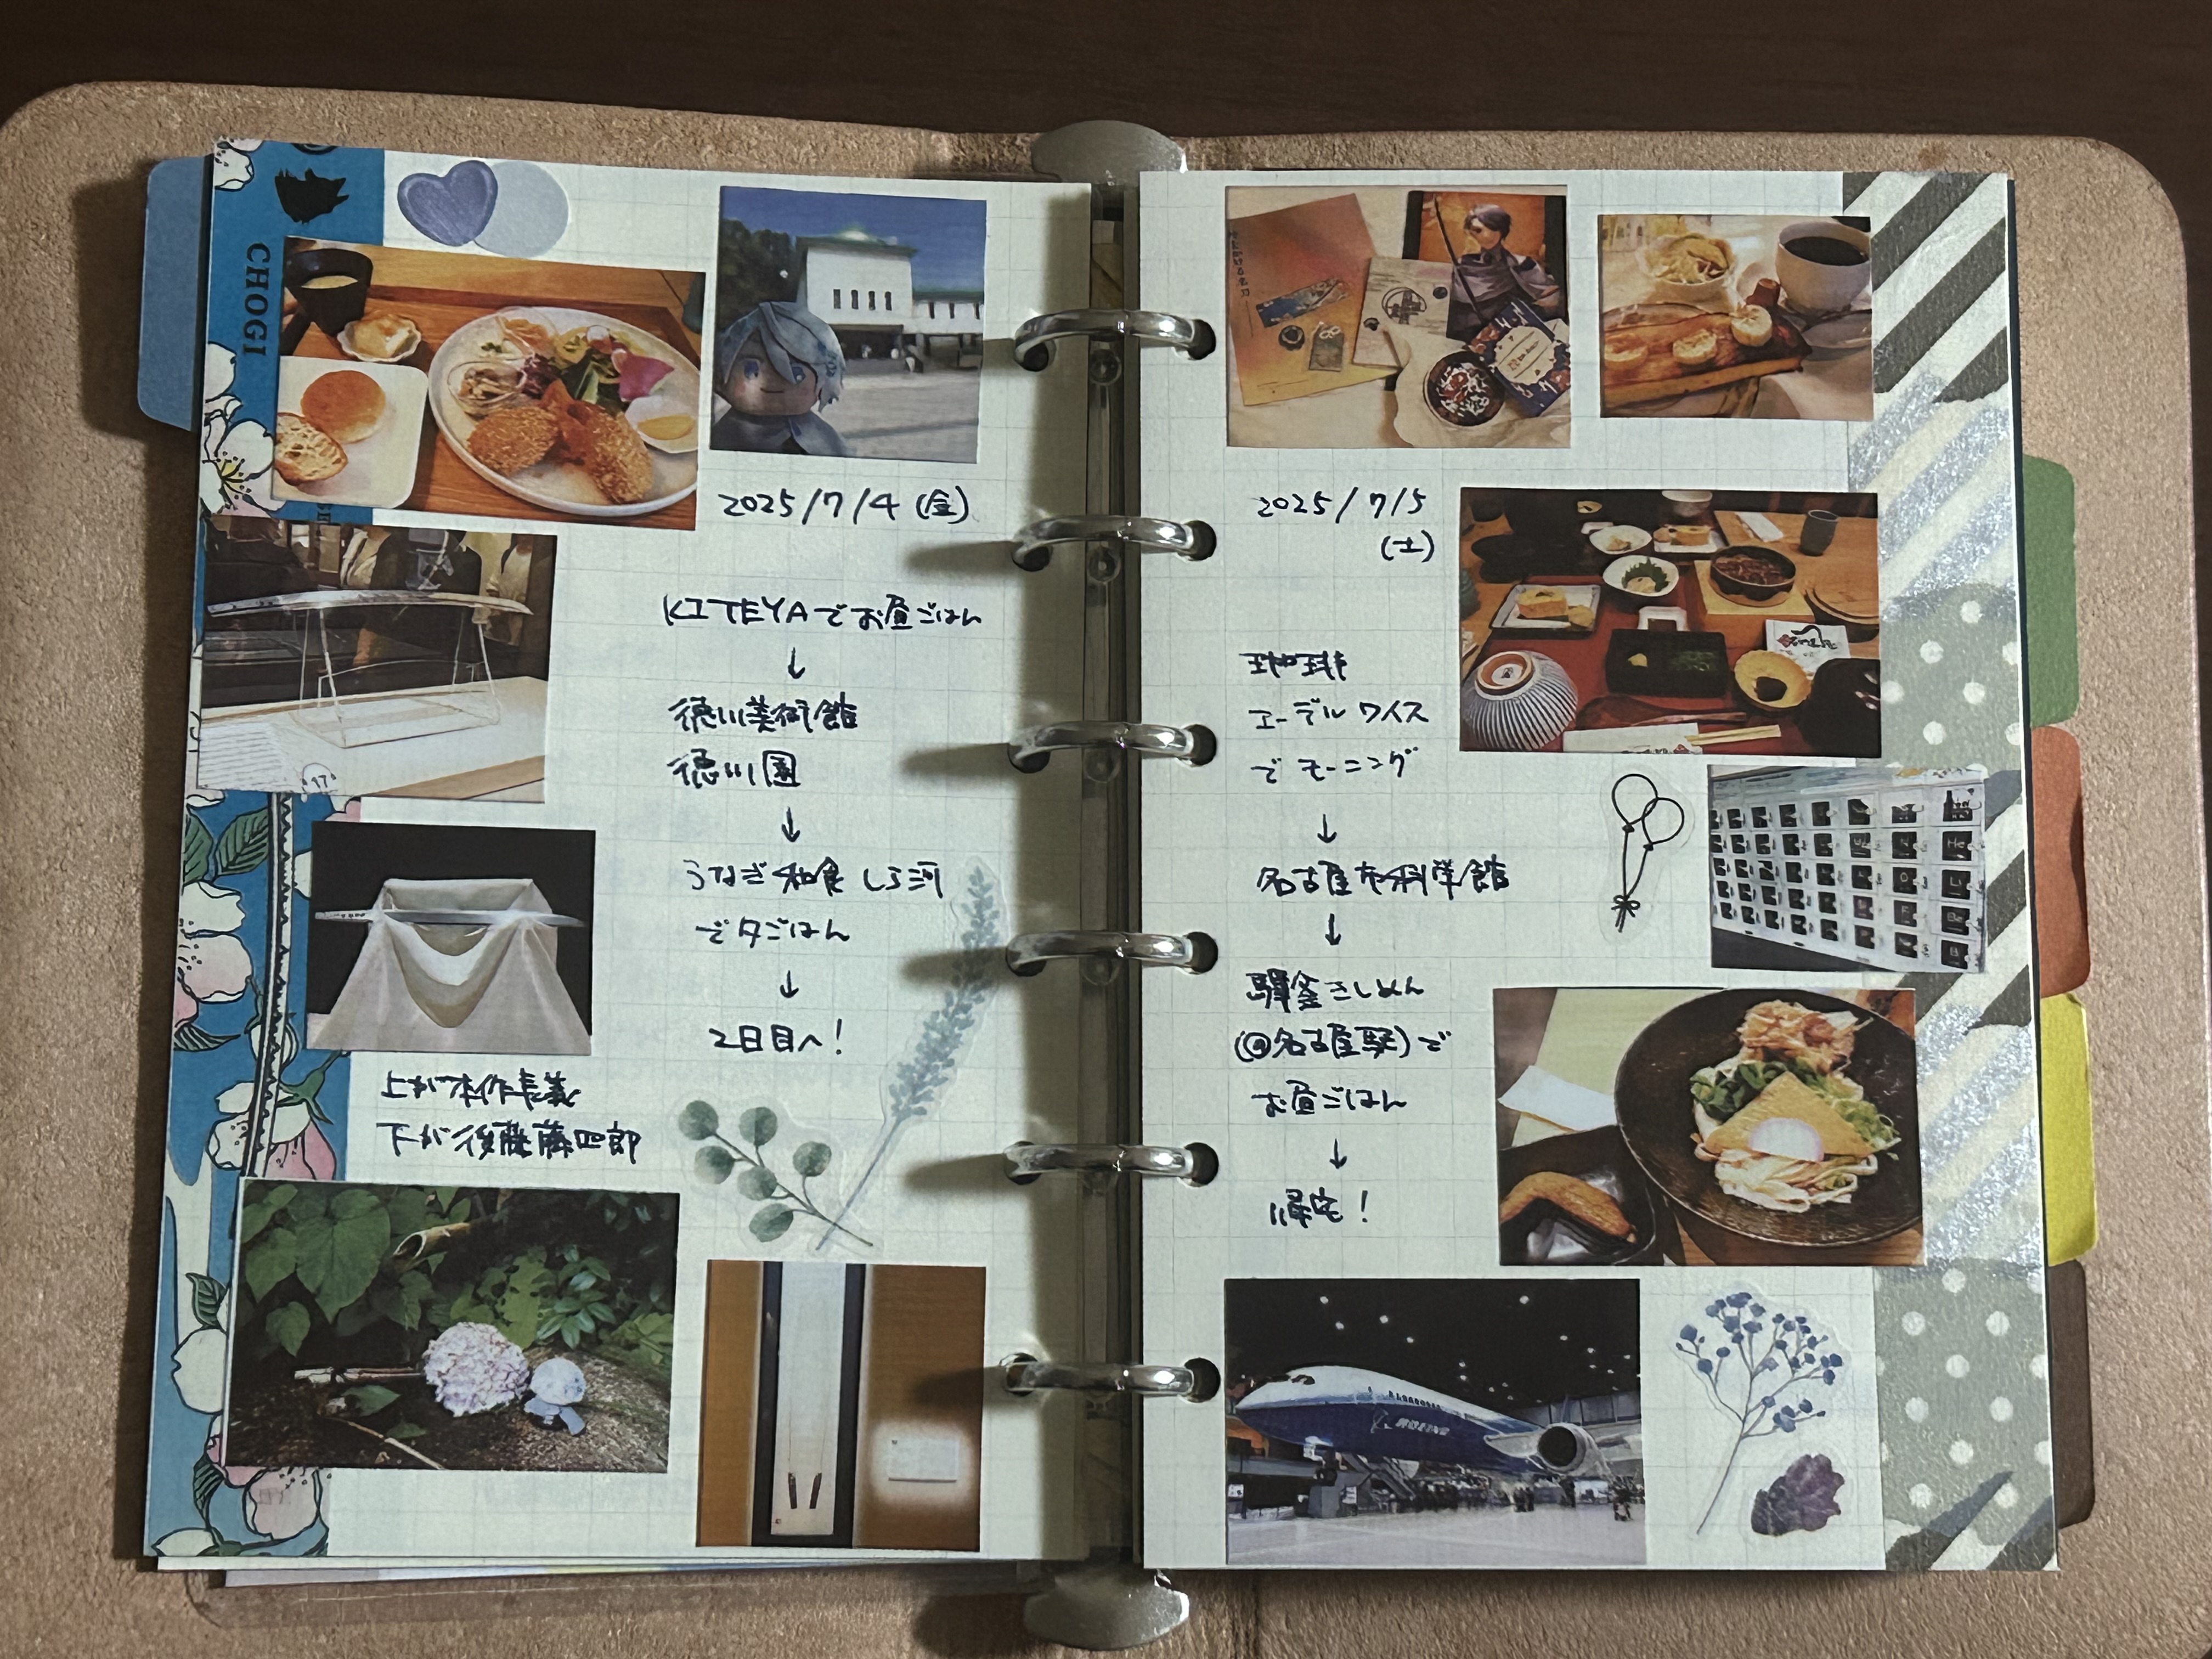 CHOGI
2025/7/4 (金)
KITEYAでお昼ごはん
↓
徳川美術館
徳川園
↓
うなぎ和食 しら河
で夕ごはん
↓
2日目へ!
上が本作長義
下が後藤藤四郎
17
2025/7/5
(土)
珈琲
エーデルワイス
でモーニング
↓
名古屋市科学館
↓
驛釜きしめん
(@名古屋駅)で
お昼ごはん
↓
帰宅!
BOEING